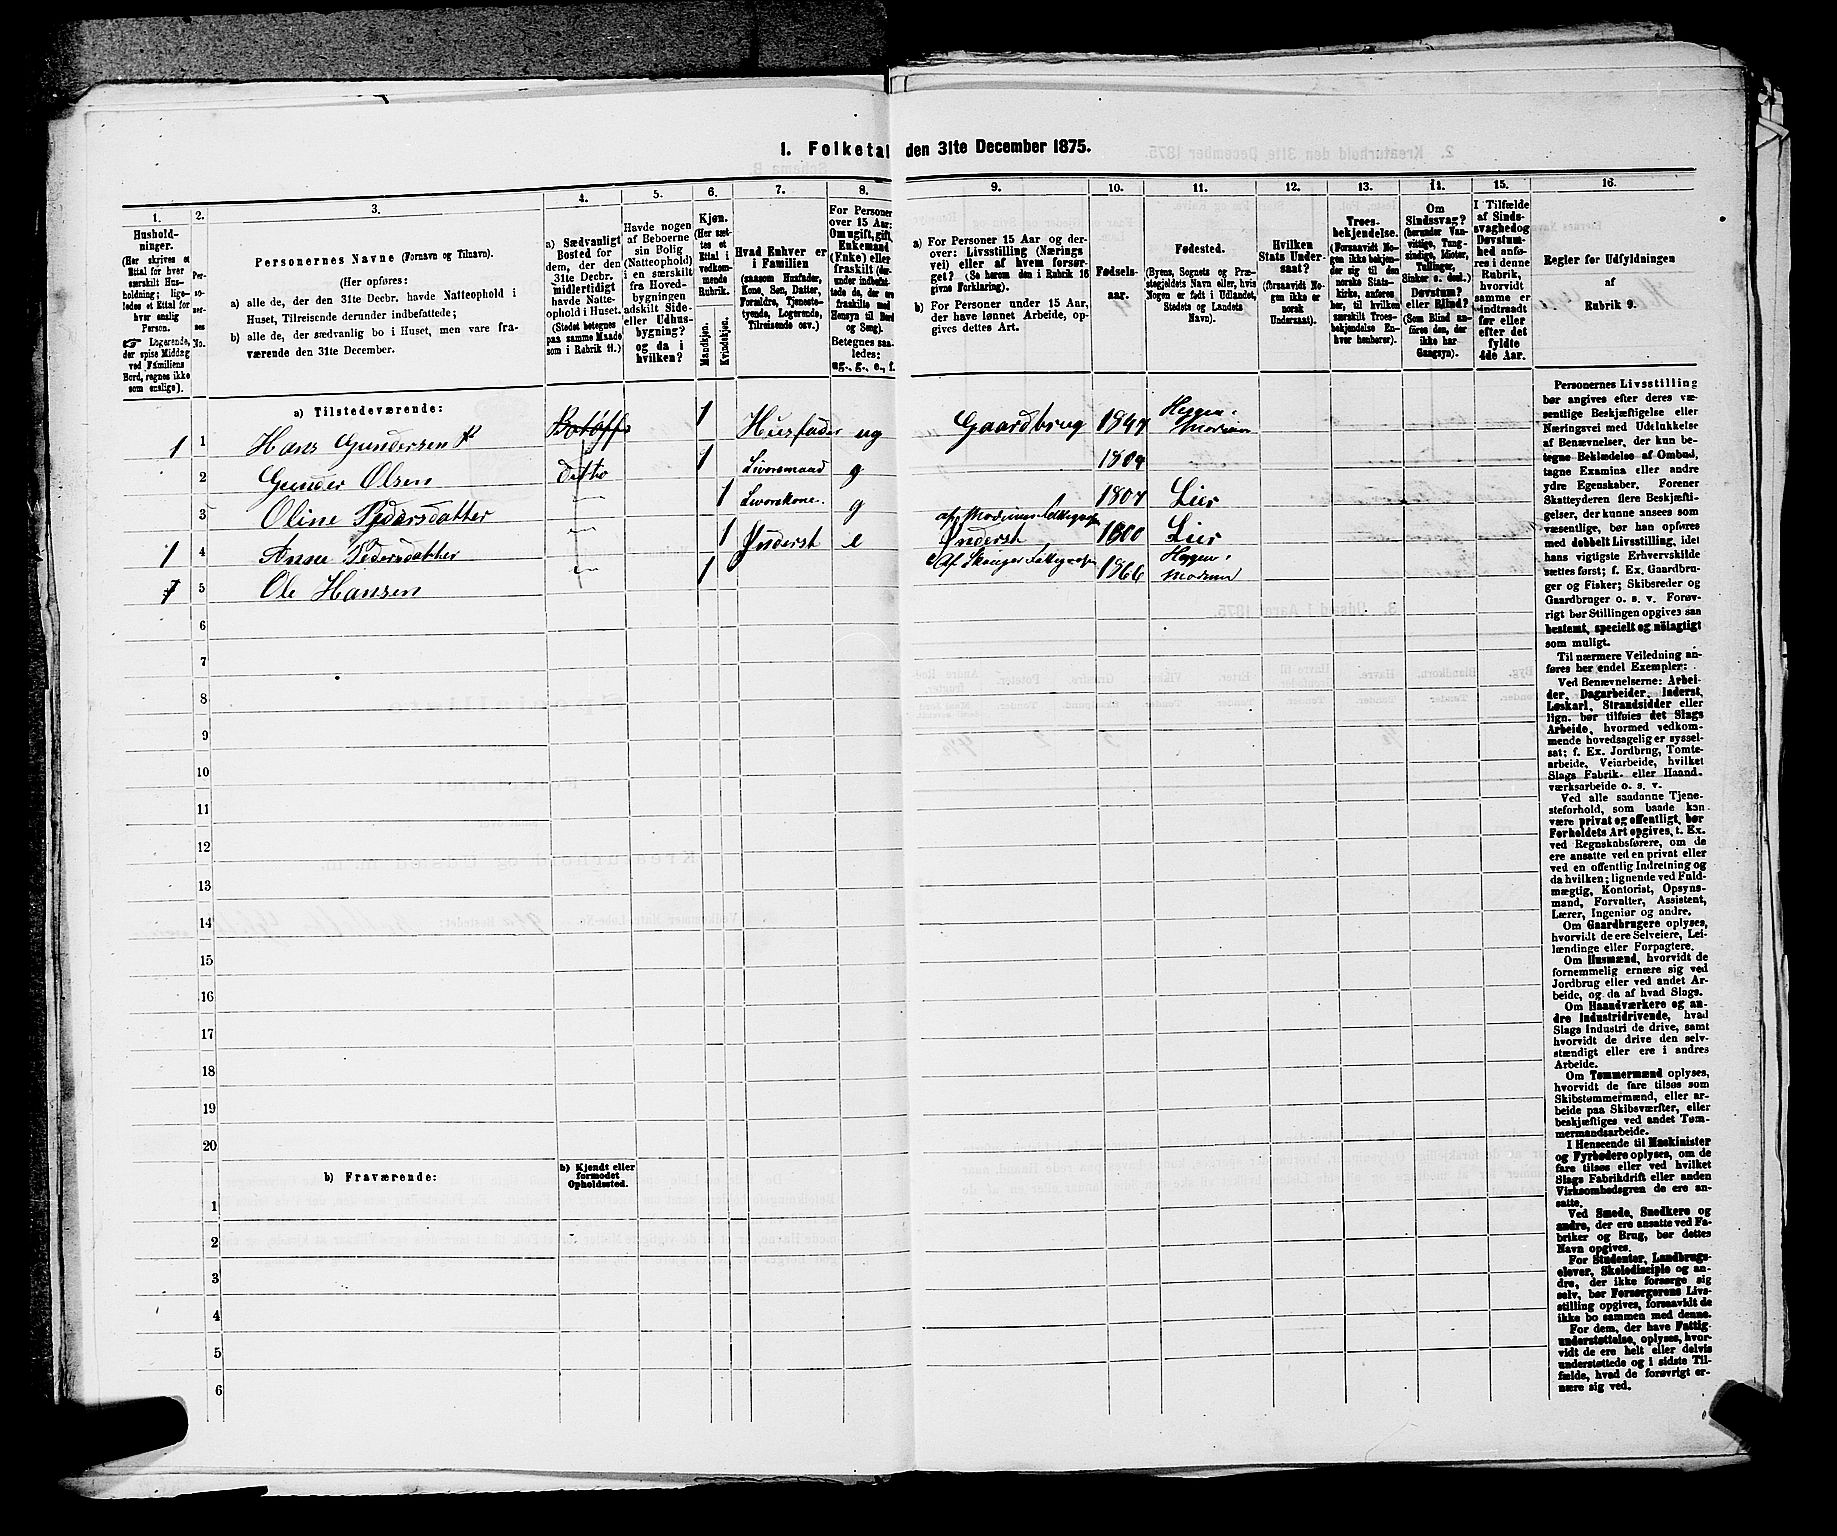 1. Folketal den 31te December 1875.
1. 2. 3. 4. 5. 6. 7. 8. 9. 10. 11. 12. 13. 14. 15. 16.
Hushold-
ninger.
(Her skrives et
Ettal for hver
særskilt Hus-
holdning; lige-
ledes et Ettal for
hver enslig
Person.
☞ Logerende,
der spise Middag
ved Familiens
Bord, regnes ikke
som enslige).
Per-
so-
ner-
nes
No.
Personernes Navne (Fornavn og Tilnavn).
(Her opføres:
a) alle de, der den 31te Decbr. havde Natteophold i
Huset, Tilreisende derunder indbefattede;
b) alle de, der sædvanlig bo i Huset, men vare fra-
værende den 31te December.
a) Sædvanligt
Bosted for
dem, der den
31te Decbr.
midlertidigt
havde Natte-
ophold i Huset.
(Stedet betegnes
paa samme Maade
som i Rubrik 11.)
Havde nogen
af Beboerne
sin Bolig
(Natteophold)
i en særskilt
fra Hoved-
bygningen
adskilt Side-
eller Udhus-
bygning?
og da i
hvilken?
Kjøn.
(Her sæt-
tes et
Ettal i
vedkom-
mende
Rubrik.
Mandkjøn.
Kvindekjøn.
Hvad Enhver er
i Familien
(saasom Husfader,
Kone, Søn, Datter,
Forældre, Tjeneste-
tyende, Logerende,
Tilreisende osv.)
For Personer
over 15 Aar:
Om ugift, gift,
Enkemand
(Enke) eller
fraskilt (der-
under indbefat-
tede de, der ere
fraskilte med
Hensyn til Bord
og Seng).
Betegnes saa-
ledes:
ug., g., e., f.
a) For Personer 15 Aar og der-
over: Livsstilling (Nærings
vei) eller af hvem forsør-
get? (Se herom den i Rubrik 16
givne Forklaring).
b) For Personer under 15 Aar,
der have lønnet Arbeide, op-
gives dettes Art.
Fødsels-
aar.
Fødested.
(Byens, Sognets og Præ-
stegjeldets Navn eller, hvis
Nogen er født i Udlandet,
Stedets og Landets
Navn).
Hvilken
Stats Under-
saat?
(forsaavidt No-
gen ikke er
norsk
Undersaat).
Troes-
bekjendelse.
(Forsaavidt No-
gen ikke bekjen-
der sig til den
norske Stats-
kirke, anføres
her, til hvilken
særskilt Troes-
bekjendelse En-
hver henhører).
Om
Sindssvag?
(herunder Van-
vittige, Tung-
sindige, Idioter,
Tullinger,
Sinker o. desl.)
Døvstum?
eller Blind?
(Som Blind an-
føres den, der
ikke har
Gangsyn).
I Tilfælde
af Sinds-
svaghed og
Døvstum-
hed anfø-
res i denne
Rubrik,
hvorvidt
samme er
indtraadt
før eller
efter det
fyldte
4de Aar.
Regler for Udfyldningen
af
Rubrik 9.
a) Tilstedeværende:
1 1 Hans Gundersen 1 Husfader ug Gaardbrug 1847 Heggen, Modum
2 Gunder Olsen ditto 1 g 1804
3 Oline Pedersdatter 1 g 1807 Lier
1 4 Anne Pedersdatter 1 Inderst e Inderst 1800 Lier
5 Ole Hansen 1 1866 Heggen, Modum
6
7
8
9
10
11
12
13
14
15
16
17
18
19
20
b) Fraværende:
b) Kjendt eller
formodet
Opholdssted.
1
2
3
4
5
6
Personernes Livsstilling
bør angives efter deres væ-
sentlige Beskjæftigelse eller
Næringsvei med Udelukkelse
af Benævnelser, der kun be-
tegne Beklædelse af Ombud,
tagne Examina eller andre
ydre Egenskaber. Forener
Skatteyderen flere Beskjæfti-
gelser, der kunne ansees som
væsentlige, bør han opføres
med dobbelt Livsstilling, idet
hans vigtigste Erhvervskilde
sættes først; f. Ex. Gaardbru-
ger og Fisker; Skibsreder og
Gaardbruger o. s. v. Forøv-
rigt bør Stillingen opgives saa
bestemt, specielt og nøiagtigt
som muligt.
Til nærmere Veiledning an-
føres her endel Exempler:
Ved Benævnelserne: Arbei-
der, Dagarbeider, Inderst,
Løskarl, Strandsidder eller
lign. bør tilføies det Slags
Arbeide, hvormed vedkom-
mende hovedsagelig er syssel-
sat; f. Ex. Jordbrug, Tomte-
arbeide, Veiarbeide, hvilket
Slags Fabrik- eller Haand-
værksarbeide o. s. v.
Ved alle saadanne Tjene-
steforhold, som baade kan
være privat og offentligt, bør
Forholdets Art opgives, t. Ex.
ved Regnskabsførere, om de
ere ansatte ved en privat eller
ved en offentlig Indretning og
da hvilken; lignende ved Fuld-
mægtig, Kontorist, Opsyns-
mand, Forvalter, Assistent,
Lærer, Ingeniør og andre.
Om Gaardbrugere oplyses,
hvorvidt de ere Selveiere, Lei-
lændinge eller Forpagtere.
Om Husmænd, hvorvidt de
fornemmelig ernære sig ved
Jordbrug eller ved andet Ar-
beide, og da af hvad Slags.
Om Haandværkere og an-
dre Industridrivende, hvad
Slags Industri de drive, samt
hvorvidt de drive den selv-
stændigt eller ere i andres
Arbeide.
Om Tømmermænd oplyses,
hvorvidt de fare tilsøs som
Skibstømmermænd, eller ar-
beide paa Skibsværfter, eller
beskjæftiges ved andet Tøm-
mermandsarbeide.
I Henseende til Maskinister
og Fyrbødere oplyses, om de
fare tilsøs eller ved hvilket
Slags Fabrikdrift eller anden
Virksombedsgren de ere an-
satte.
Ved Smede, Snedkere og
andre, der ere ansatte ved Fa-
briker og Brug, bør dettes
Navn opgives.
For Studenter, Landbrugs-
elever, Skoledisciple og an-
dre, der ikke forsørge sig
selv, bør Forsørgerens Livs-
stilling opgives, forsaavidt de
ikke bo sammen med denne.
For dem, der have Fattig-
understøttelse, oplyses, hvor-
vidt de ere helt eller delvis
understøttede og i sidste Til-
fælde, hvad de forøvrigt er-
nære sig ved.